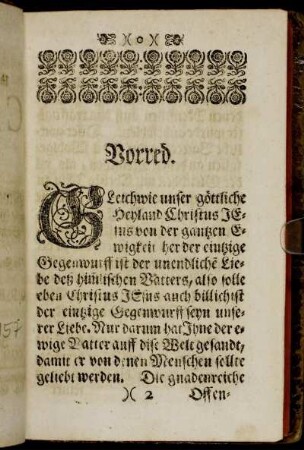 )( o )(
Vorred.
GLeichwie unser göttliche
Heyland Christus JE-
sus von der gantzen E-
wigkeit her der eintzige
Gegenwurff ist der unendlichē Lie-
be deß himlischen Vatters, also solle
eben Christus JEsus auch billich ist
der eintzige Gegenwurff seyn unse-
rer Liebe. Nur darum hat Ihne der e-
wige Vatter auff dise Welt gesandt,
damit er von denen Menschen sollte
geliebt werden. Die gnadenreiche
)( 2 Offen-
157